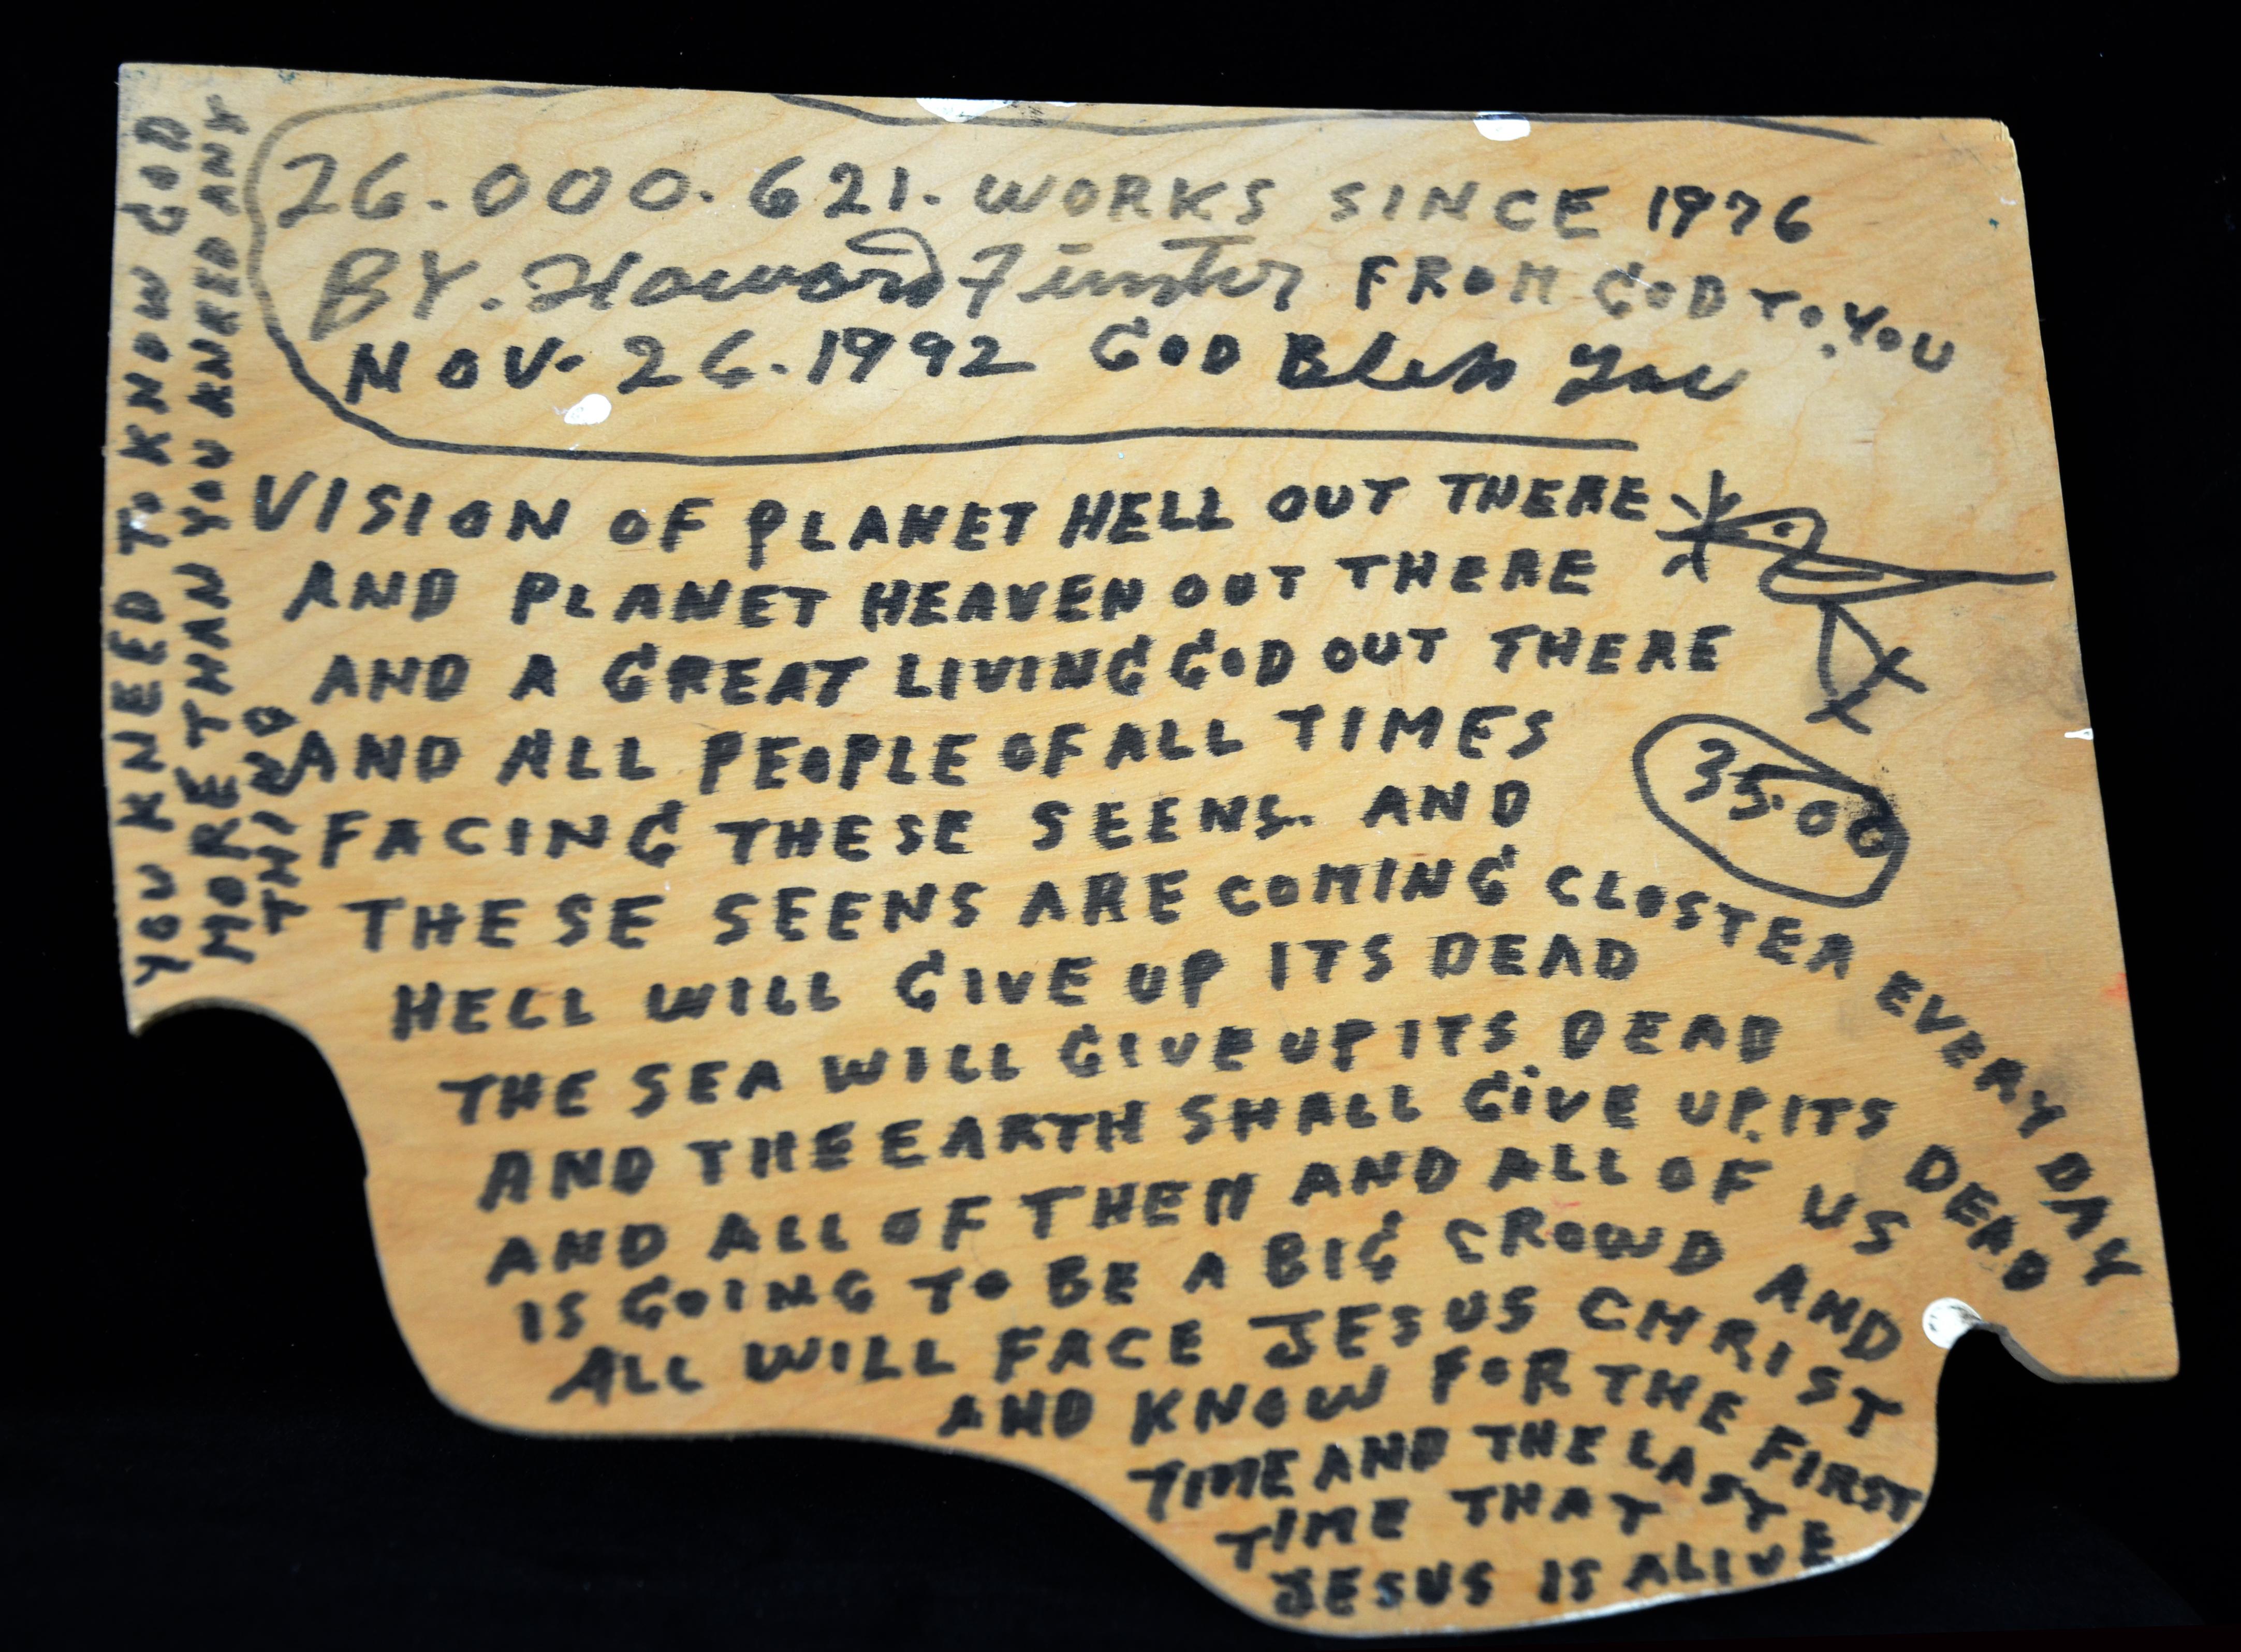 26.000.621. WORKS SINCE 1976
BY. Howard Finster FROM GOD TO. YOU
NOV. 26. 1992 GOD Bless You
VISION OF PLANET HELL OUT THERE
AND PLANET HEAVEN OUT THERE
AND A GREAT LIVING GOD OUT THERE
AND ALL PEOPLE OF ALL TIMES
FACING THESE SEENS. AND
THESE SEENS ARE COMING CLOSTER EVERY DAY
HELL WILL GIVE UP ITS DEAD
THE SEA WILL GIVE UP ITS DEAD
AND THE EARTH SHALL GiVE UP. ITS DEAD
AND ALL OF THEM AND ALL OF US
IS GOING TO BE A BIG CROWD AND
ALL WILL FACE JESUS CHRIST
AND KNOW FOR THE FIRST
TIME AND THE LAST
TIME THAT
JESUS IS ALIVE
35.00
YOU KNEED TO KNOW GOD
MORE THAN YOU KNEED ANY
THING